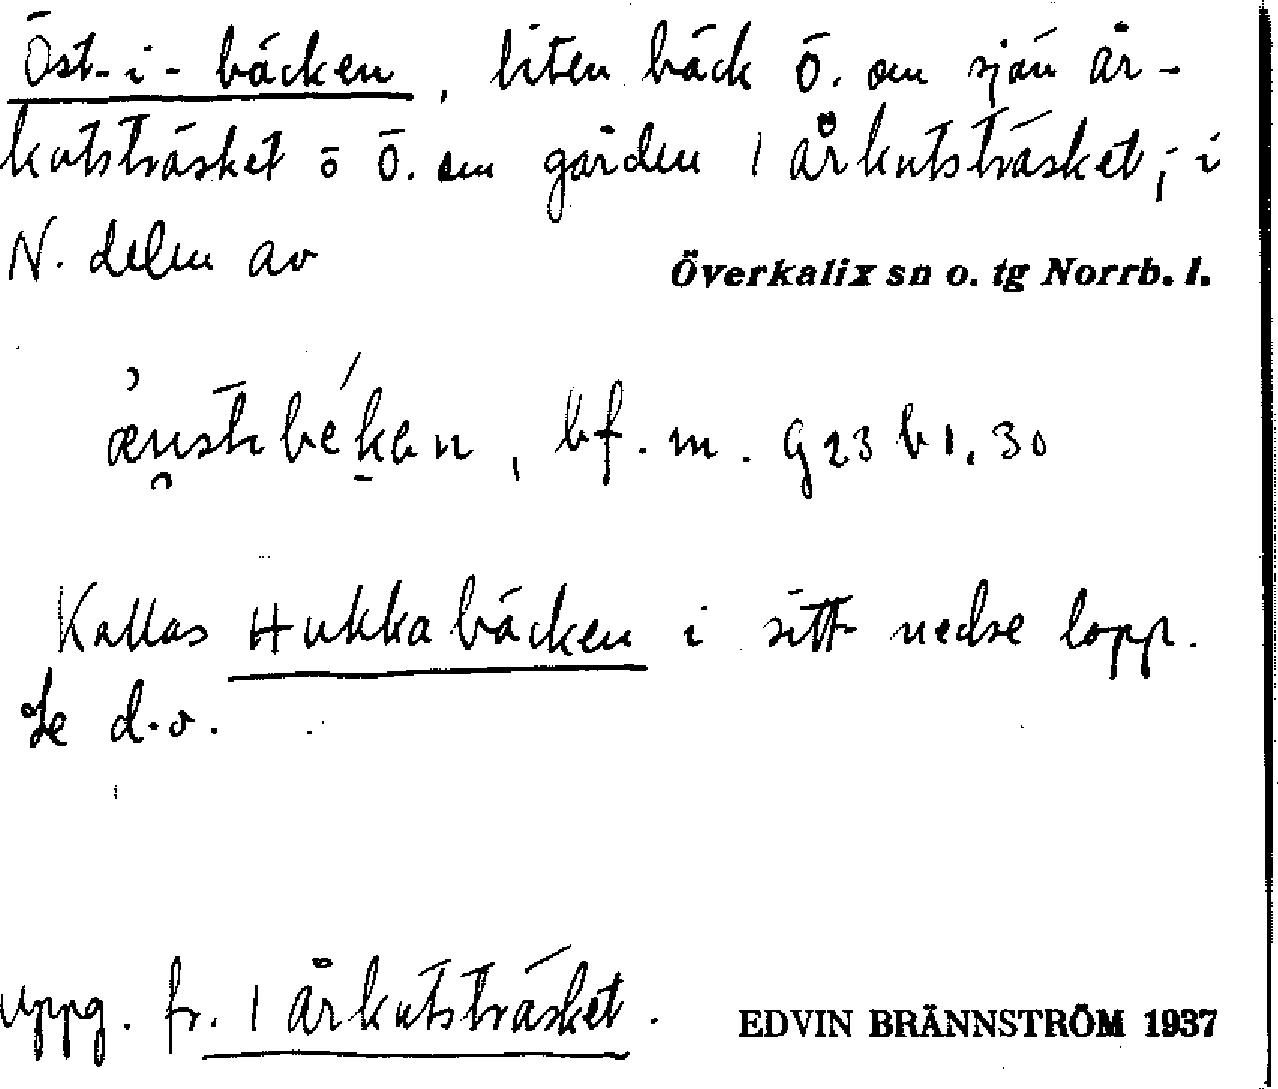 Öst-i-bäcken, liten bäck Ö. om sjön År-
kutsträsket o Ö. om gården 1 Årkutsträsket, i
N. delen av
Överkalix sn o. tg Norrb. l.
bf. m. G 23 b 1. 30
Kallas Hukkabäcken i sitt nedre lopp.
Se d.o.
Uppg. fr. 1 Årkutsträsket.
EDVIN BRÄNNSTRÖM 1937